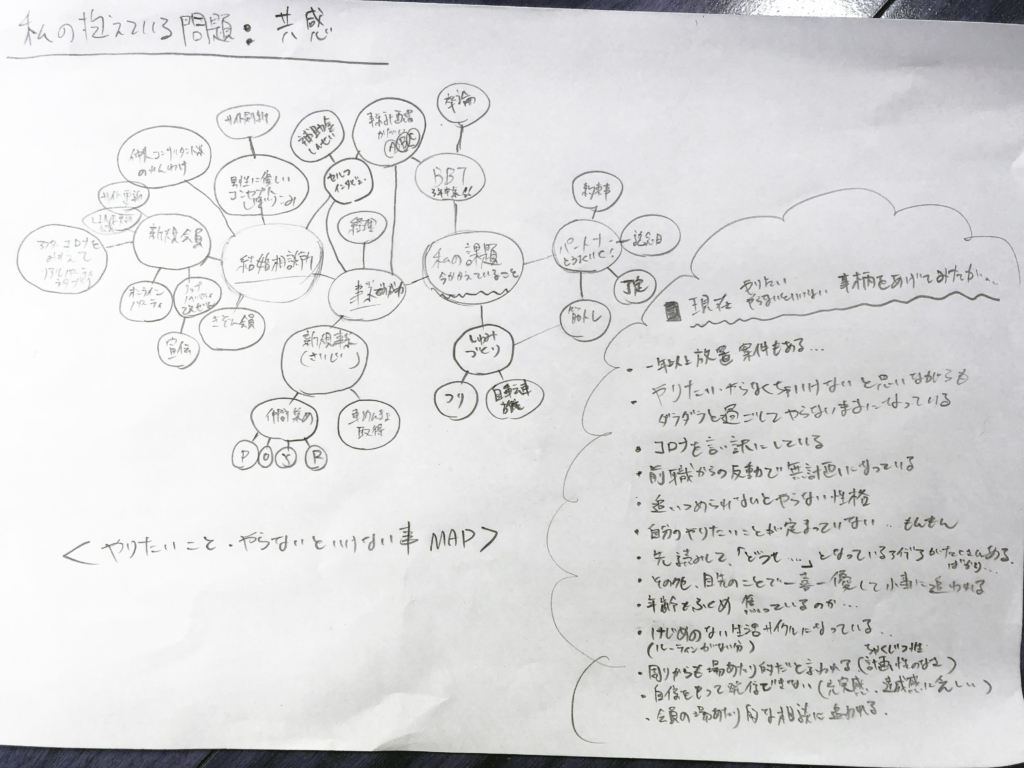 私の抱えている問題：共感
卒論
サイト
補助金
しんせい
事業計画書
セルフ
インタビュー
BBT
男性に優しい
コンセプト
仲人コンサルタント
新規会員
オンライン
パーティ
宣伝
きぞん会員
結婚相談所
経理
事業
私の課題
今かかえていること
パートナー
とうまくいく!
約束事
記念日
筋トレ
しゅみ
づくり
つり
自転車
新規事業
(さいじ)
仲間集め
P
O
S
R
取得
<やりたいこと・やらないといけない事 MAP>
現在 やりたい
やらないといけない 事柄をあげてみたが…
・一年以上放置案件もある…
・やりたい・やらなくちゃいけないと思いながらも
ダラダラと過ごしてやらないままになっている
・コロナを言い訳にしている
・前職からの反動で無計画になっている
・追いつめられないとやらない性格
・自分のやりたいことが定まっていない… もんもん
・先読みして、「どうせ…」となっているアイデアがたくさんある
ばかり…
・その他、目先のことで一喜一優して小事に追われる
・年齢もふくめ焦っているのか…
・けじめのない生活サイクルになっている…
(ルーティンがない分)
・周りからも場あたり的だと言われる(計画性のなさ)
・自信をもって発信できない(充実感、達成感に乏しい)
・会員の場あたり的な相談に追われる